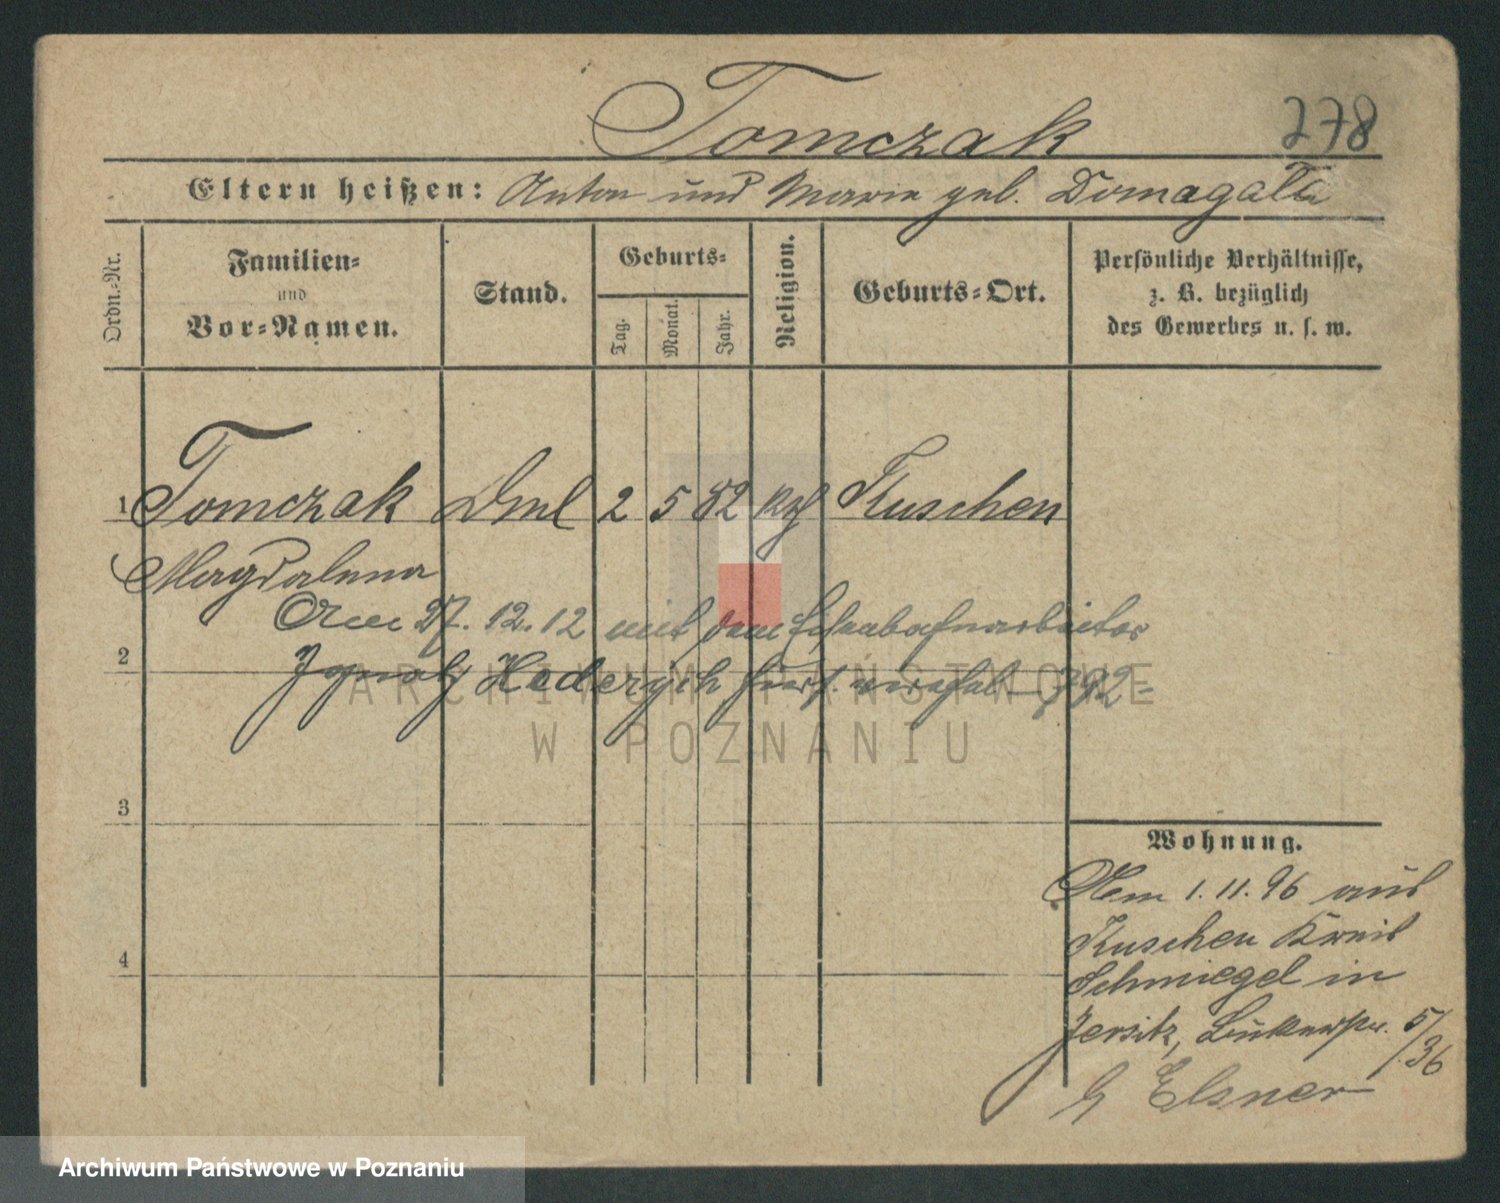 Tomczak
278
Eltern heißen: Anton und Marie geb. Domagała
Ordn.-Nr.
Familien-
und
Vor-Namen.
Stand.
Geburts-
Tag.
Monat.
Jahr.
Religion.
Geburts-Ort.
Persönliche Verhältnisse,
z. B. bezüglich
des Gewerbes u. s. w.
1 Tomczak Dml 2 5 82 kth Kuschen
Magdalena
Am 27. 12. 12 mit dem Eisenbahnarbeiter
2
Ignatz Hederych hier verehel.
ARCHIWUM PAŃSTWOWE
W POZNANIU
3
Wohnung.
Vom 1. 11. 96 aus
Kuschen Kreis
4
Schmiegel in
Jersitz, 5/
36
b Elsner
Archiwum Państwowe w Poznaniu